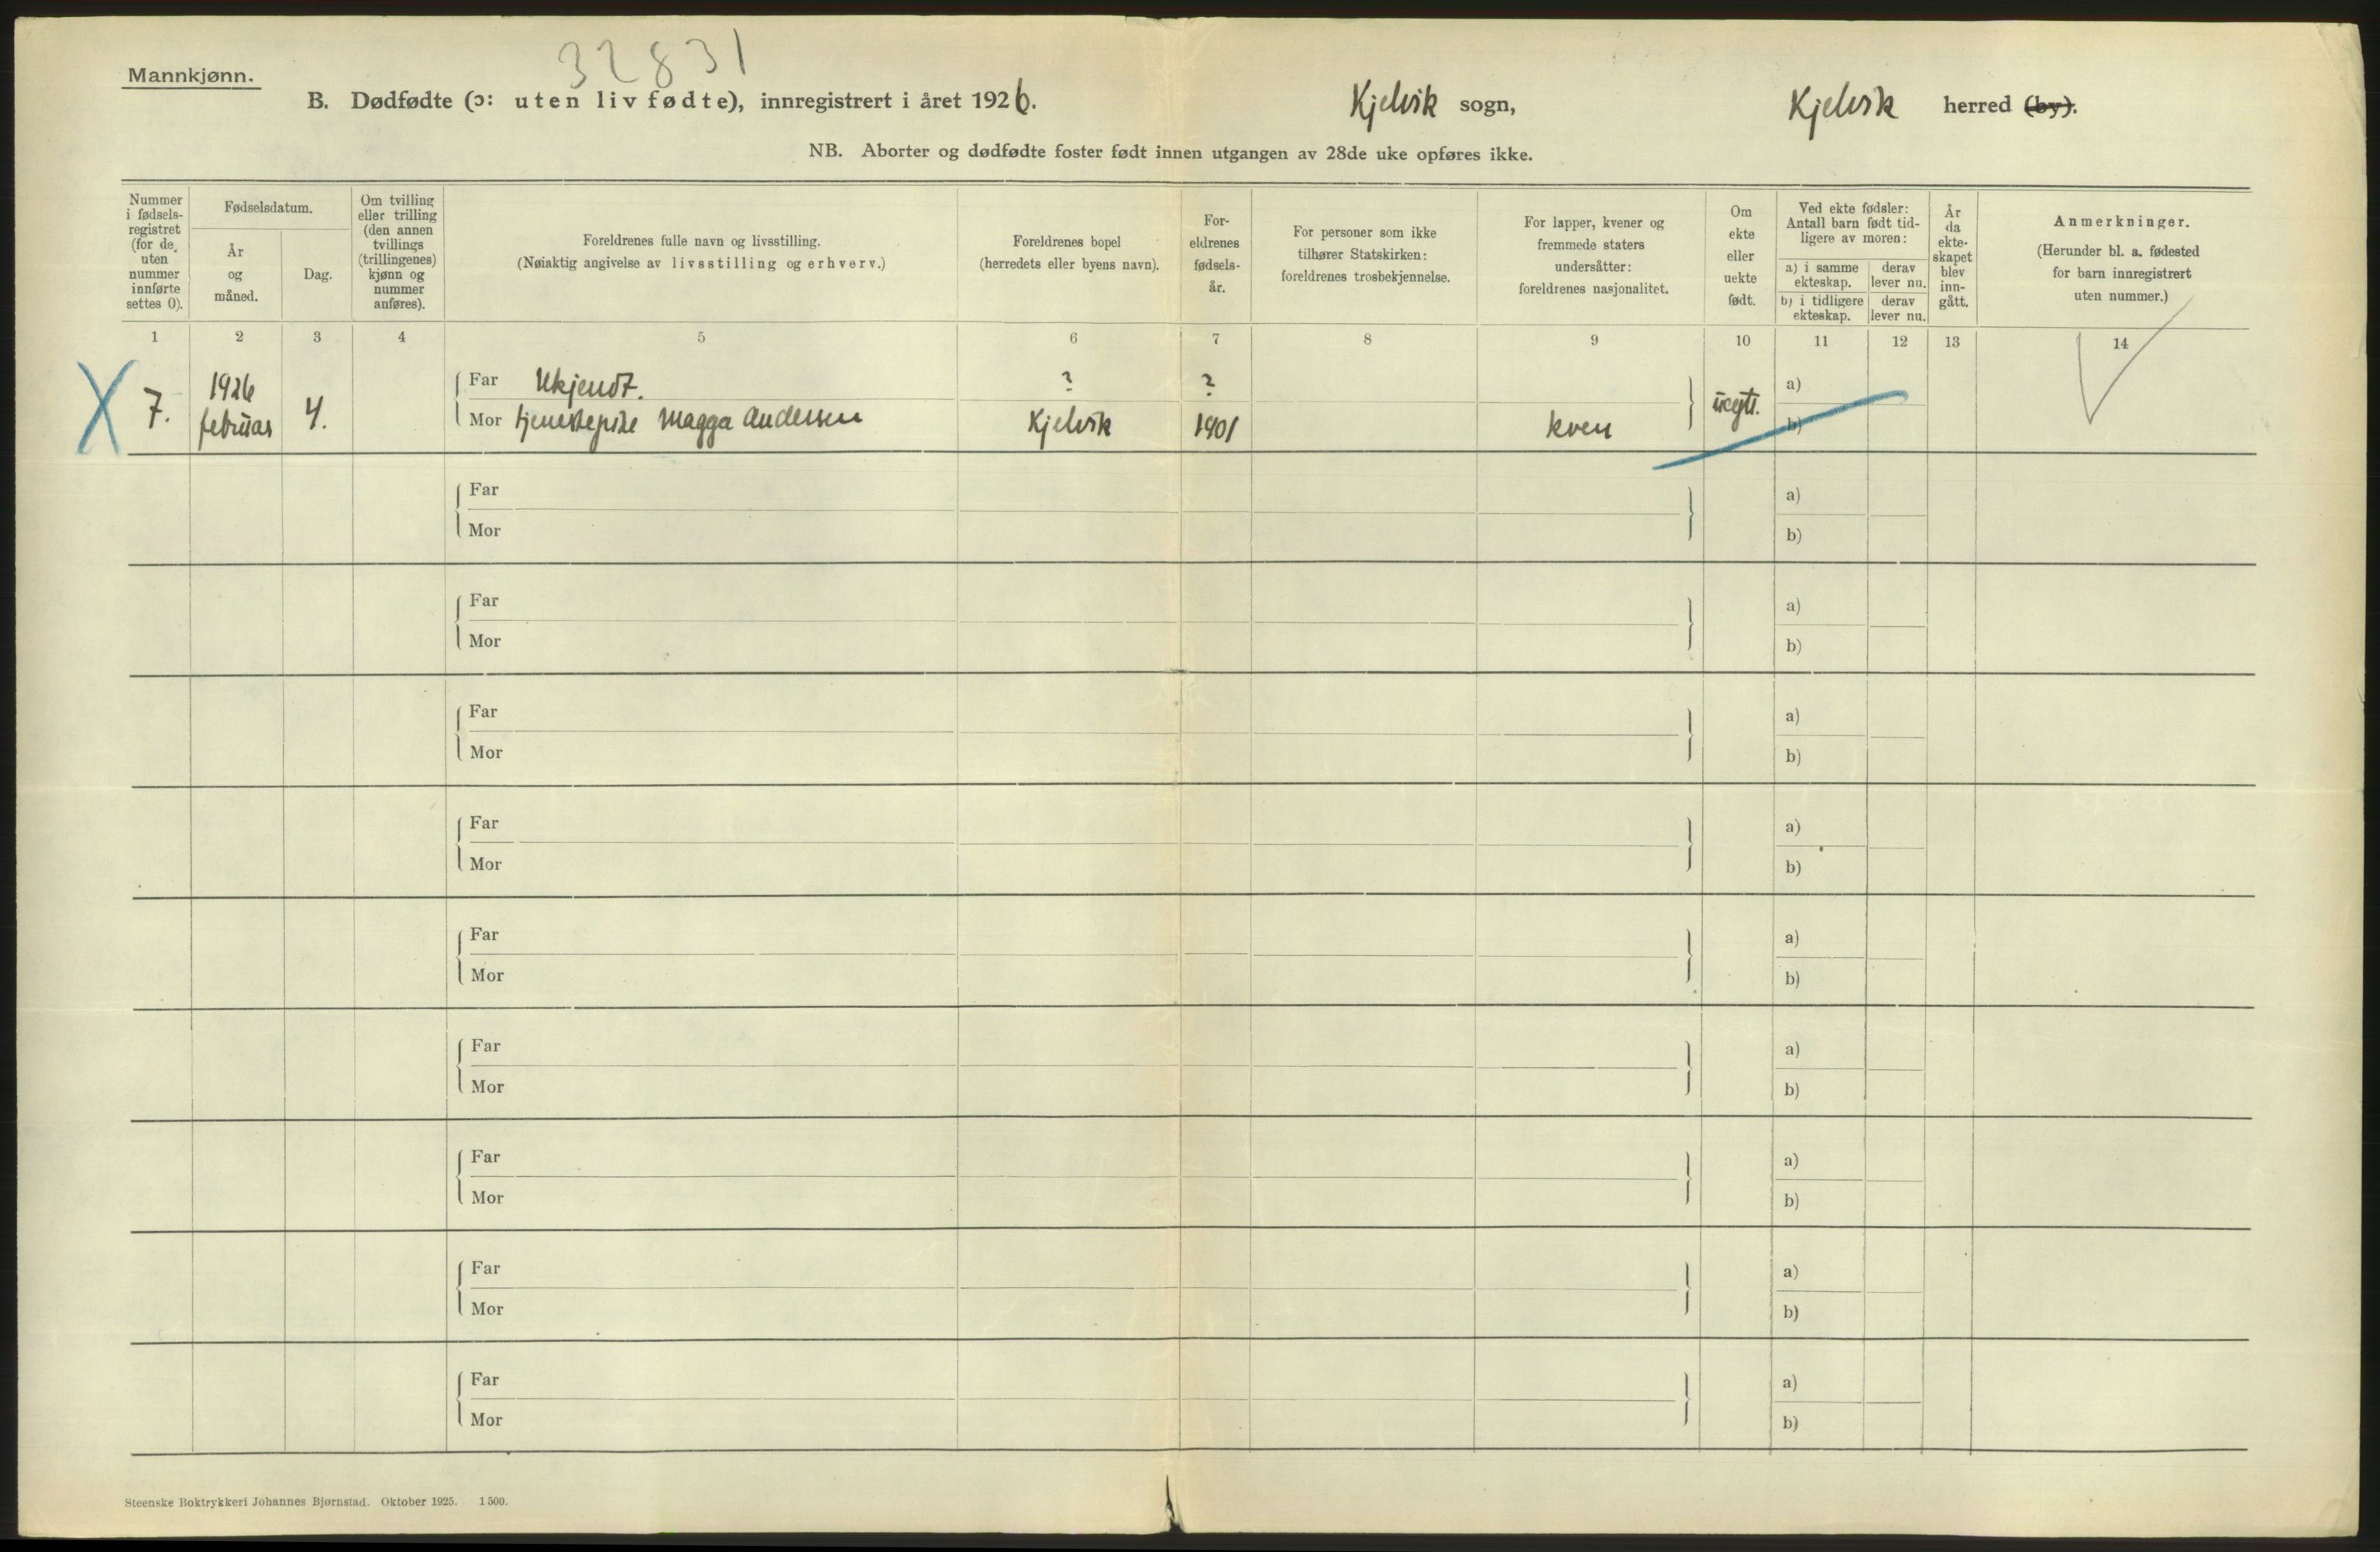 32831
Mannkjønn.
B. Dødfødte (ɔ: uten liv fødte), innregistrert i året 1926. Kjelvik sogn, Kjelvik herred (by).
NB. Aborter og dødfødte foster født innen utgangen av 28de uke opføres ikke.
Nummer i fødsels-registret (for de uten nummer innførte settes 0).
Fødselsdatum.
År og måned.
Dag.
Om tvilling eller trilling (den annen tvillings (trillingenes) kjønn og nummer anføres).
Foreldrenes fulle navn og livsstilling.
(Nøiaktig angivelse av livsstilling og erhverv.)
Foreldrenes bopel
(herredets eller byens navn).
For-eldrenes fødsels-år.
For personer som ikke tilhører Statskirken: foreldrenes trosbekjennelse.
For lapper, kvener og fremmede staters undersåtter: foreldrenes nasjonalitet.
Om ekte eller uekte født.
Ved ekte fødsler: Antall barn født tid-ligere av moren:
a) i samme ekteskap.
derav lever nu.
b) i tidligere ekteskap.
derav lever nu.
År da ekte-skapet blev inn-gått.
Anmerkninger.
(Herunder bl. a. fødested for barn innregistrert uten nummer.)
1 2 3 4 5 6 7 8 9 10 11 12 13 14
X 7. 1926 februar 4.
Far Ukjendt. ? ?
Mor tjenestepike Magga Andersen Kjelvik 1901 kven uegte.
a)
b)
Far a)
Mor b)
Far a)
Mor b)
Far a)
Mor b)
Far a)
Mor b)
Far a)
Mor b)
Far a)
Mor b)
Far a)
Mor b)
Far a)
Mor b)
Far a)
Mor b)
Steenske Boktrykkeri Johannes Bjørnstad. Oktober 1925. 1500.